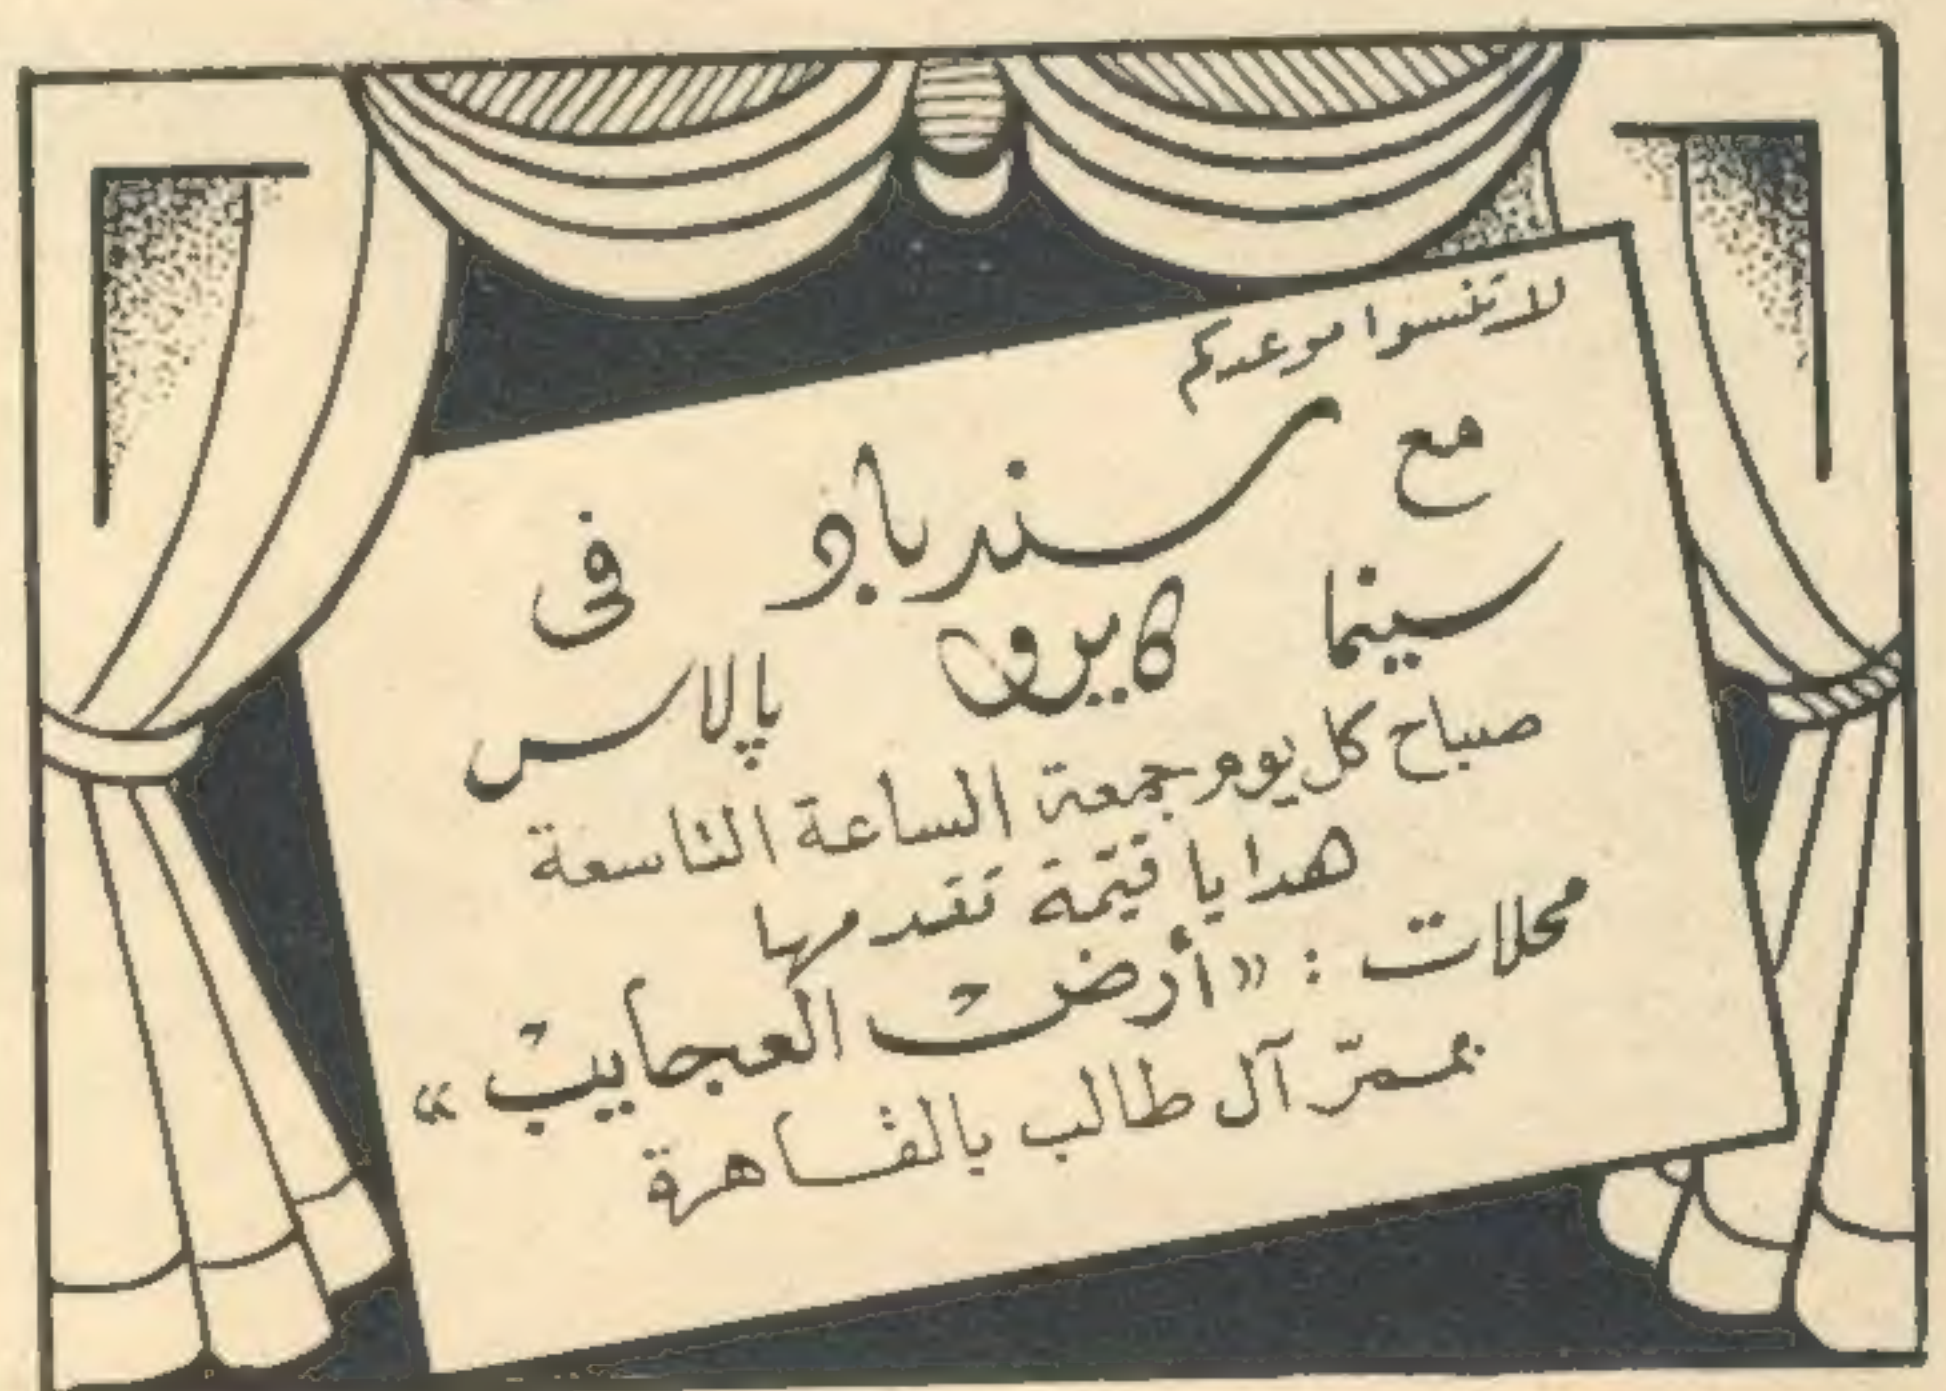 لا تنسوا موعدكم
مع سندباد فى
سينما كايرو پالاس
صباح كل يوم جمعة الساعة التاسعة
هدايا قيّمة تقدمها
محلات : «أرض العجايب»
بممرّ آل طالب بالقاهرة